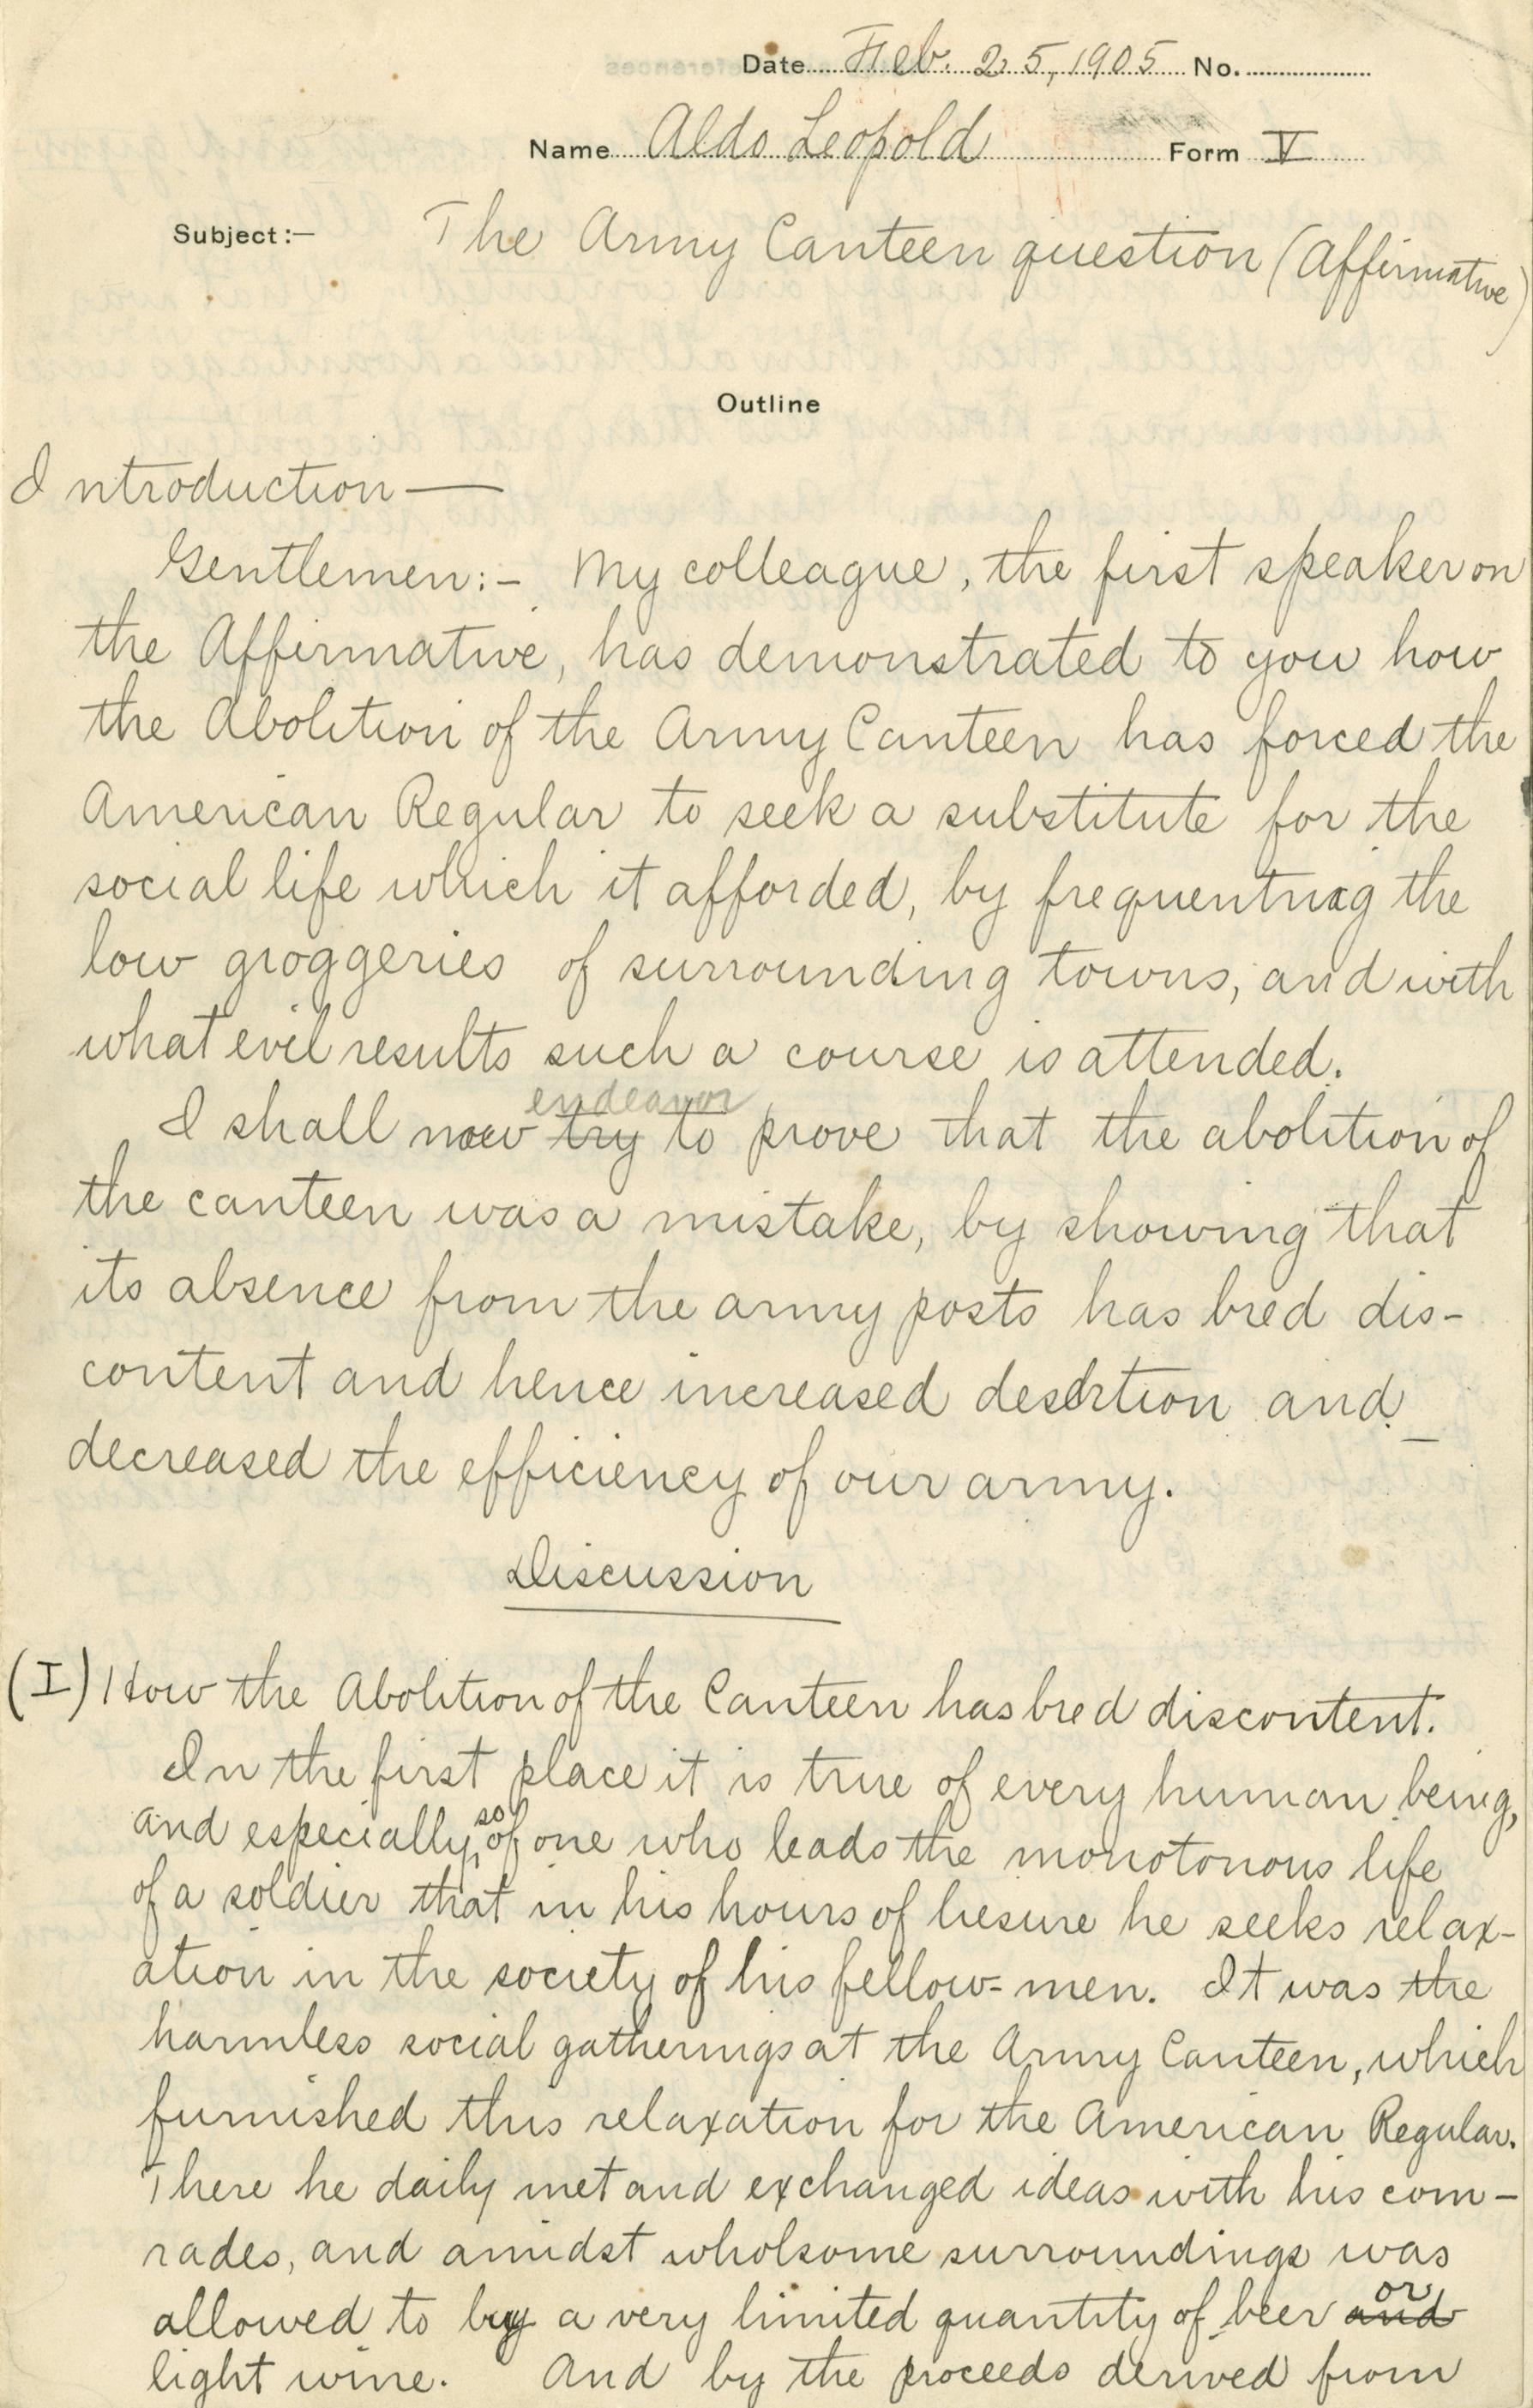 Date Feb. 25, 1905 No.
Name Aldo Leopold Form V
Subject:— The Army Canteen question (Affirmative)
Outline
Introduction—
Gentlemen:- My colleague, the first speaker on
the Affirmative, has demonstrated to you how
the Abolition of the Army Canteen has forced the
American Regular to seek a substitute for the
social life which it afforded, by frequenting the
low groggeries of surrounding towns, and with
what evil results such a course is attended.
endeavor
I shall now try to prove that the abolition of
the canteen was a mistake, by showing that
its absence from the army posts has bred dis-
content and hence increased desertion and
decreased the efficiency of our army.
Discussion
(I) How the Abolition of the Canteen has bred discontent.
In the first place it is true of every human being,
and especially so of one who leads the monotonous life
of a soldier that in his hours of liesure he seeks relax-
ation in the society of his fellow-men. It was the
harmless social gatherings at the Army Canteen, which
furnished this relaxation for the American Regular.
There he daily met and exchanged ideas with his com-
rades, and amidst wholsome surroundings was
or
allowed to buy a very limited quantity of beer and
light wine. And by the proceeds derived from